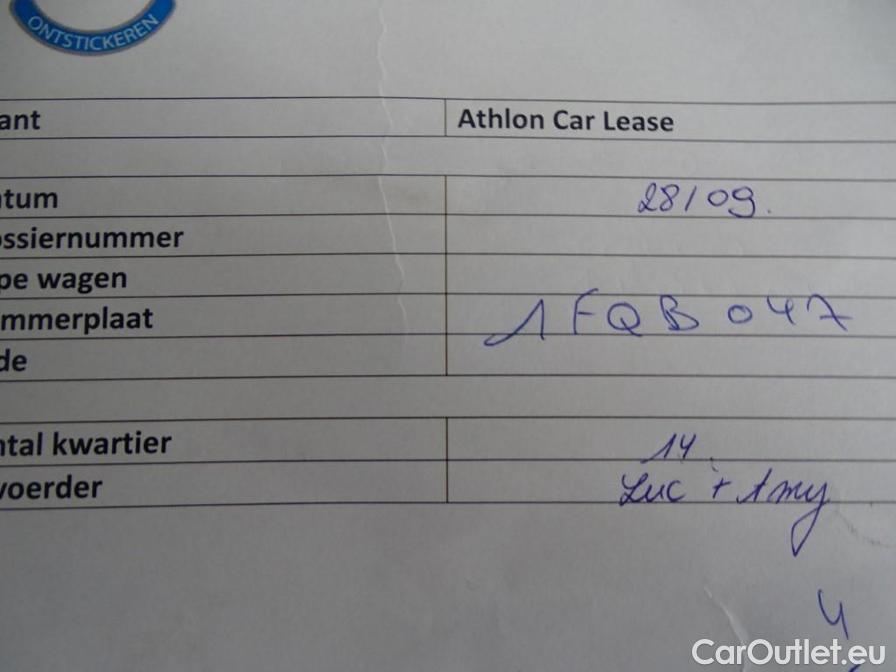 ONTSTICKEREN
ant Athlon Car Lease
tum 28/09.
ssiernummer
pe wagen
mmerplaat 1 FQB 047
de
ntal kwartier 14.
voerder Luc + Amy
4
CarOutlet.eu